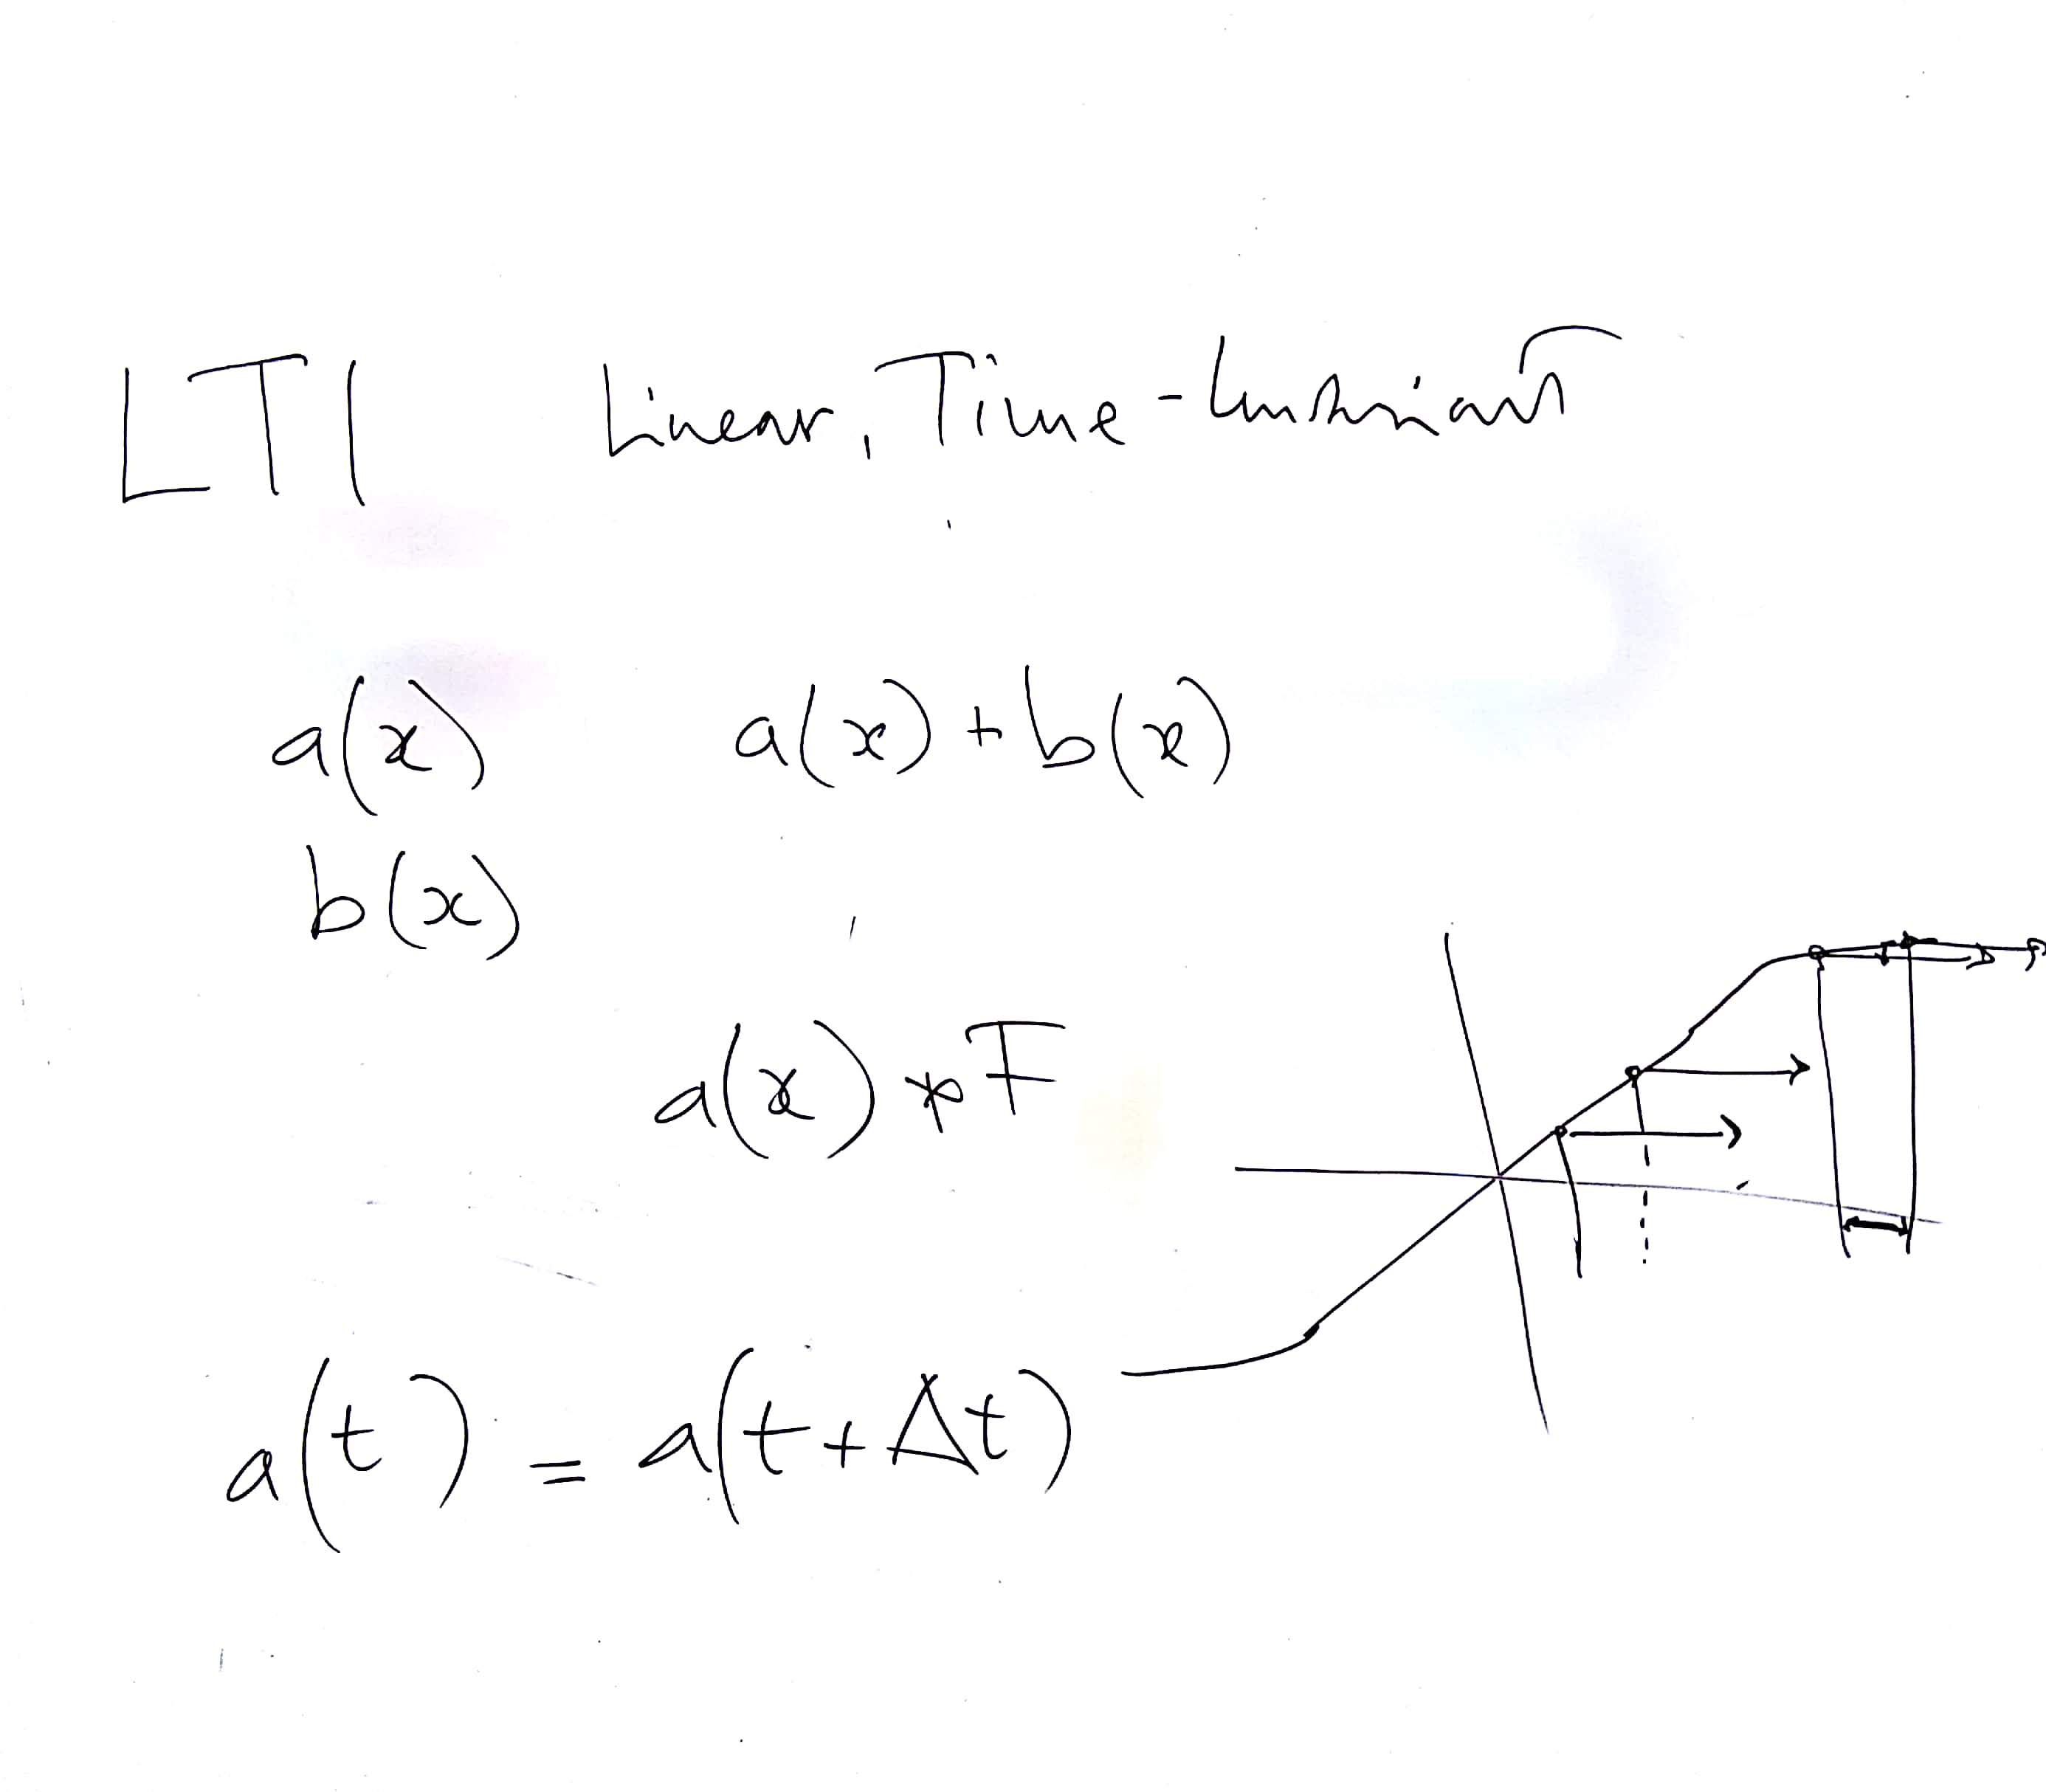 LTI Linear, Time-Invariant
a(x) a(x) + b(x)
b(x)
a(x) * F
a(t) = a(t + Δt)